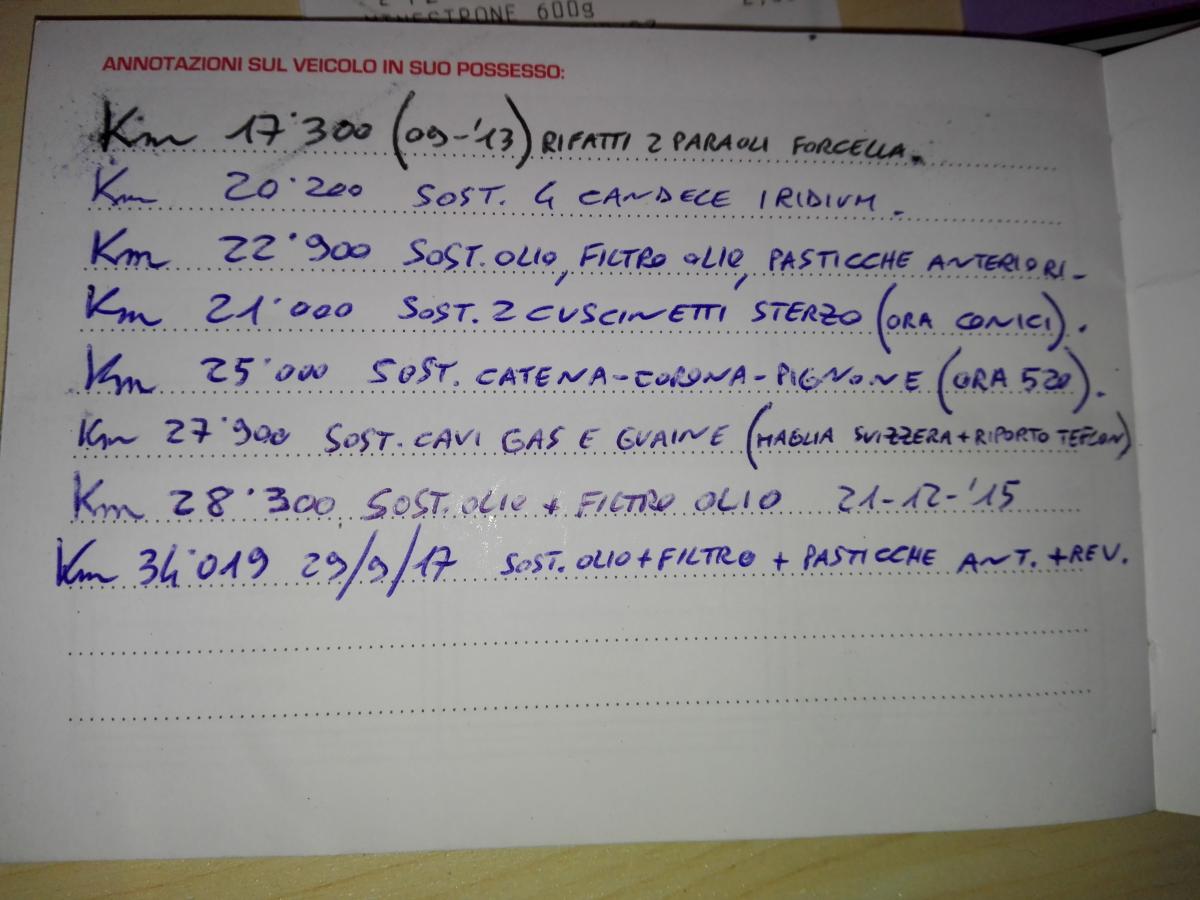 MINESTRONE 600g
ANNOTAZIONI SUL VEICOLO IN SUO POSSESSO:
Km 17'300 (09-'13) RIFATTI 2 PARAOLI FORCELLA.
Km 20'200 SOST. 4 CANDELE IRIDIUM.
Km 22'900 SOST. OLIO, FILTRO OLIO, PASTICCHE ANTERIORI-
Km 21'000 SOST. 2 CUSCINETTI STERZO (ORA CONICI).
Km 25'000 SOST. CATENA-CORONA-PIGNONE (ORA 520).
Km 27'900 SOST. CAVI GAS E GUAINE (MAGLIA SVIZZERA + RIPORTO TEFLON)
Km 28'300 SOST. OLIO + FILTRO OLIO 21-12-'15
Km 34'019 29/9/17 SOST. OLIO + FILTRO + PASTICCHE ANT. + REV.